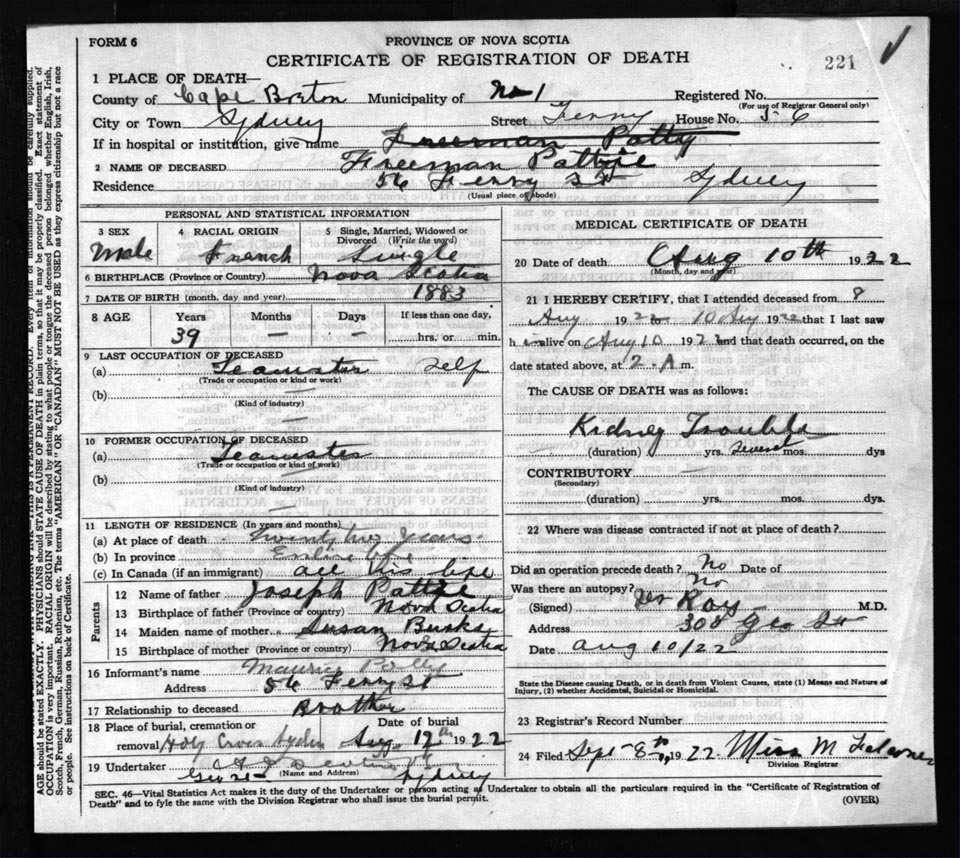 FORM 6
PROVINCE OF NOVA SCOTIA
CERTIFICATE OF REGISTRATION OF DEATH
221
1 PLACE OF DEATH—
County of Cape Breton Municipality of No 1 Registered No.
(For use of Registrar General only)
City or Town Sydney Street Ferry House No. 56
If in hospital or institution, give name Freeman Patty
2 NAME OF DECEASED Freeman Pattie
Residence 56 Ferry St Sydney
(Usual place of abode)
PERSONAL AND STATISTICAL INFORMATION
3 SEX Male
4 RACIAL ORIGIN French
5 Single, Married, Widowed or Divorced (Write the word) Single
6 BIRTHPLACE (Province or Country) Nova Scotia
7 DATE OF BIRTH (month, day and year) 1883
8 AGE Years Months Days If less than one day,
39 — — hrs. or min.
9 LAST OCCUPATION OF DECEASED
(a) Teamster Self
(Trade or occupation or kind of work)
(b)
(Kind of industry)
10 FORMER OCCUPATION OF DECEASED
(a) Teamster
(Trade or occupation or kind of work)
(b)
(Kind of industry)
11 LENGTH OF RESIDENCE (In years and months)
(a) At place of death Twenty two years
(b) In province Entire life
(c) In Canada (if an immigrant) all his life
Parents
12 Name of father Joseph Pattie
13 Birthplace of father (Province or country) Nova Scotia
14 Maiden name of mother Susan Burks
15 Birthplace of mother (Province or country) Nova Scotia
16 Informant's name Maurice Patty
Address 56 Ferry St
17 Relationship to deceased Brother
18 Place of burial, cremation or Date of burial
removal Holy Cross Sydney Aug. 12th 1922
19 Undertaker
(Name and Address)
Sydney
MEDICAL CERTIFICATE OF DEATH
20 Date of death Aug 10th 1922
(Month, day and year)
21 I HEREBY CERTIFY, that I attended deceased from 8
Aug 1922 to 10 Aug 1922 that I last saw
h alive on Aug 10 192 and that death occurred, on the
date stated above, at 2. A m.
The CAUSE OF DEATH was as follows:
Kidney Trouble
(duration) yrs. several mos. dys
CONTRIBUTORY
(Secondary)
(duration) yrs. mos. dys.
22 Where was disease contracted if not at place of death?
Did an operation precede death? No Date of
Was there an autopsy? No
(Signed) Dr Roy M.D.
Address 308 Geo St
Date Aug 10/22
State the Disease causing Death, or in death from Violent Causes, state (1) Means and Nature of
Injury, (2) whether Accidental, Suicidal or Homicidal.
23 Registrar's Record Number
24 Filed Sept 8th, 1922 Miss M
Division Registrar
SEC. 46—Vital Statistics Act makes it the duty of the Undertaker or person acting as Undertaker to obtain all the particulars required in the "Certificate of Registration of
Death" and to fyle the same with the Division Registrar who shall issue the burial permit.
(OVER)
RECORD. Every item of information should be carefully supplied.
AGE should be stated EXACTLY. PHYSICIANS should STATE CAUSE OF DEATH in plain terms, so that it may be properly classified. Exact statement of
OCCUPATION is very important. RACIAL ORIGIN will be described by stating to what people or tongue the deceased person belonged whether English, Irish,
Scotch, French, German, Russian, Ruthenian, etc. The terms "AMERICAN" OR "CANADIAN" MUST NOT BE USED as they express citizenship but not a race
or people. See instructions on back of Certificate.